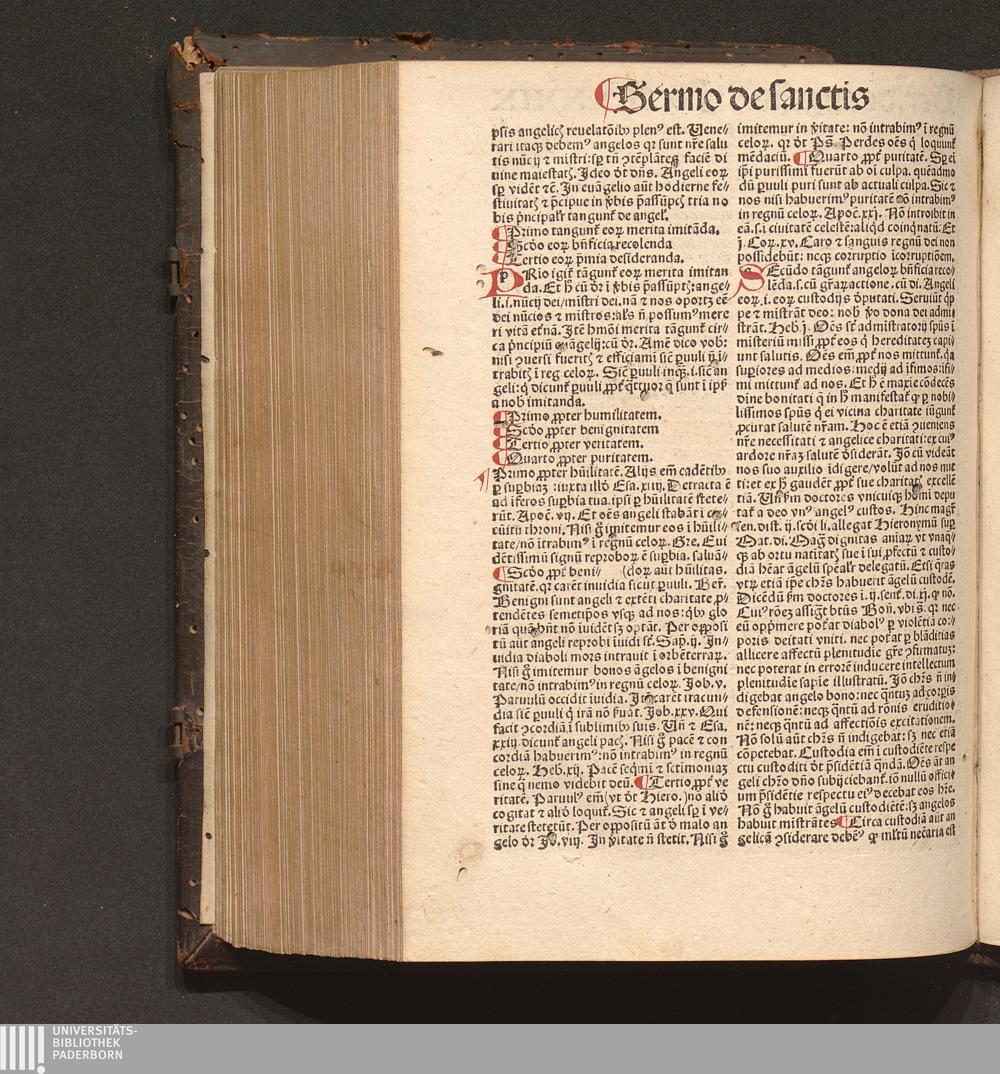 ¶Sermo de sanctis
psis angelicꝭ reuelatōibꝰ plenꝰ est. Uene⸗
rari itaqꝫ debemꝰ angelos qꝛ sunt nr̄e salu
tis nūcij ⁊ mistri: sꝑ tn̄ ꝯtēplātes faciē di
uine maiestatꝭ. Ideo dt̄ dn̄s. Angeli eoꝝ
sꝑ vidēt ⁊c̄. In euāgelio aūt hodierne fe⸗
stiuitatꝭ ⁊ p̄cipue in v̄bis p̄assūptꝭ tria no
bis p̄ncipalr̄ tangunt̄ de angel̓.
¶Primo tangunt̄ eoꝝ merita imitāda.
¶Scd̓o eoꝝ bn̄ficia recolenda
¶Tertio eoꝝ p̄mia desideranda.
PRio igit̄ tāgunt̄ eoꝝ merita imitan
da. Et h̄ cū dr̄ ī v̄bis p̄assūptꝭ: ange⸗
li. i. nūcij dei/mistri dei. nā ⁊ nos oportꝫ eē
dei nūcios ⁊ mistros: al̓s n̄ possumꝰ mere
ri vitā et̓nā. Itē hmōi merita tāgunt̄ cir⸗
ca p̄ncipiū euāgelij: cū dr̄. Amē dico vob̓:
nisi ꝯuersi fueritꝭ ⁊ efficiami sic̄ ꝑuuli n̄ ī⸗
trabitꝭ ī reg̓ celoꝝ. Sic̄ ꝑuuli inqꝫ. i. sic̄ an
geli: q̓ dicunt̄ ꝑuuli ꝓpt̄ q̄ttuor q̓ sunt ī ip̄s̓
a nob̓ imitanda.
¶Primo ꝓpter humilitatem.
¶Scd̓o ꝓpter benignitatem
¶Tertio ꝓpter veritatem.
¶Quarto ꝓpter puritatem.
¶Primo ꝓpter hūilitatē. Alijs em̄ cadētibꝰ
ꝑ suꝑbiaꝫ: iuxta illd̓ Esa. xiiij. Detracta ē
ad īferos suꝑbia tua. ipsi ꝑ hūilitatē stete⸗
rūt. Apoc̄. vij. Et oēs angeli stabāt ī cir⸗
cūitu throni. Nisi g̓ imitemur eos ī hūili⸗
tate/nō ītrabimꝰ ī regnū celoꝝ. Gre. Eui
dētissimū signū reproboꝝ ē suꝑbia. saluā⸗
¶Scd̓o ꝓpt̄ beni⸗ (doꝝ aūt hūilitas.
gnitatē. qꝛ carēt inuidia sicut ꝑuuli. Ber̄.
Benigni sunt angeli ⁊ extēti charitate ꝑ⸗
tendētes semetip̄os vsqꝫ ad nos: qb̓ꝰ glo
riā quā hn̄t nō īuidēt sꝫ optāt. Per opposi
tū aūt angeli reprobi īuidi st̄. Sap̄. ij. In⸗
uidia diaboli mors intrauit ī orbē terraꝝ.
Nisi g̓ imitemur bonos āgelos ī benigni
tate/nō intrabimꝰ in regnū celoꝝ. Job. v.
Paruulū occidit īuidia. Itē carēt iracun⸗
dia sic̄ ꝑuuli q̓ irā nō s̓uāt. Job. xxv. Qui
facit ꝯcordiā ī sublimibꝰ suis. Un̄ ⁊ Esa.
xxiij. dicunt̄ angeli pacꝭ. Nisi g̓ pacē ⁊ con
cordiā habuerimꝰ: nō intrabimꝰ in regnū
celoꝝ. Heb. xij. Pacē seq̓mi ⁊ sctimoniaꝫ
sine q̄ nemo videbit deū. ¶Tertio ꝓpt̄ ve
ritatē. Paruulꝰ em̄ (vt dt̄ Hiero.) nō alid̓
cogitat ⁊ alid̓ loquit̄. Sic ⁊ angeli sꝑ ī ve⸗
ritate stetetūt. Per oppositū āt d̓ malo an
gelo dr̄ Jo. viij. In v̄itate n̄ stetit. Nisi g̓
imitemur in v̄itate: nō intrabimꝰ ī regnū
celoꝝ. qꝛ dt̄ Ps̄. Perdes oēs q̓ loquunt̄
mēdaciū. ¶Quarto ꝓpt̄ puritatē. Sꝑ ei
ip̄i purissimi fuerūt ab oī culpa. quēadmo
dū ꝑuuli puri sunt ab actuali culpa. Sic ⁊
nos nisi habuerimꝰ puritatē nō intrabimꝰ
in regnū celoꝝ. Apoc̄. xxj. Nō introibit in
eā. s. i ciuitatē celestē: aliqd̓ coinq̓natū. Et
j. Cor. xv. Caro ⁊ sanguis regnū dei non
possidebūt: necqꝫ corruptio īcorruptiōem.
SEcūdo tāgunt̄ angeloꝝ bn̄ficia reco⸗
lēda. s. cū gr̄aꝝ actione. cū di. Angeli
eoꝝ. i. eoꝝ custodijs d̓putati. Seruiūt q̓p
pe ⁊ mistrāt deo: nob̓ v̓o dona dei admi
strāt. Heb̓. j. Oēs st̄ admistratorij spūs ī
misteriū missi ꝓpt̄ eos q̓ hereditatē capi⸗
unt salutis. Oēs em̄ ꝓpt̄ nos mittunt̄. q̓a
suꝑiores ad medios: medij ad īfimos: īfi⸗
mi mittunt̄ ad nos. Et h̄ ē maxīe cōdecēs
diue bonitati q̄ in h̄ manifestat̄ ꝙ ꝑ nobi⸗
lissimos spūs q̓ ei vicina charitate iūgunt̄
ꝓcurat salutē nr̄am. Hoc ē etiā ꝯueniens
nr̄e necessitati ⁊ angelice charitati: ex cuiꝰ
ardore nr̄aꝫ salutē d̓siderāt. Jō cū videāt
nos suo auxilio īdigere/volūt ad nos mit
ti: et ex h̄ gaudēt ꝓpt̄ sue charitatꝭ excellē
tiā. Un̄ s̓m doctores vnicuiqꝫ homi depu
tat̄ a deo vnꝰ angelꝰ custos. Hinc magr̄
sen. dist. ij. scd̓i li. allegat Hieronymū suꝑ
Mat. di. Mag̓ dignitas aniaꝝ vt vnaq̓⸗
qꝫ ab ortu natitatꝭ sue ī sui ꝓfectū ⁊ custo⸗
diā hēat āgelū spēalr̄ delegatū. Etsi q̄ras
vtꝝ etiā ip̄e chr̄s habuerit āgelū custodē.
Dicēdū s̓m doctores. i. ij. sent̄. di. xj. q̓ nō.
Cuiꝰ rōeꝫ assig̓t btūs Bon̄. vbi s̄. qꝛ nec
eū opp̄mere pot̓at diabolꝰ ꝑ violētiā co⸗
poris deitati vniti. nec pot̓at ꝑ blāditias
allicere affectū plenitudīe gr̄e ꝯfirmatuꝫ:
nec poterat in errorē inducere intellectum
plenitudīe sapīe illustratū. Jō chr̄s n̄ in⸗
digebat angelo bono: nec q̓ntuꝫ ad corꝑis
defensionē: necqꝫ q̓ntū ad rōnis eruditio⸗
nē: necqꝫ q̓ntū ad affectiōis excitationem.
Nō solū aūt chr̄s n̄ indigebat: sꝫ nec etiā
cōpetebat. Custodia em̄ ī custodiēte respe
ctu custoditi dt̄ p̄sidētiā q̓ndā. Oēs āt an
geli chr̄o dn̄o subijciebant̄. iō nullū offici⸗
um p̄sidētie respectu eiꝰ decebat eos hr̄e.
Nō g̓ habuit āgelū custodiētē: sꝫ angelos
habuit mistrātes ¶Circa custodiā aūt an
gelicā ꝯsiderare debēꝰ ꝙ mltū necāria est
UNIVERSITÄTS-
BIBLIOTHEK
PADERBORN